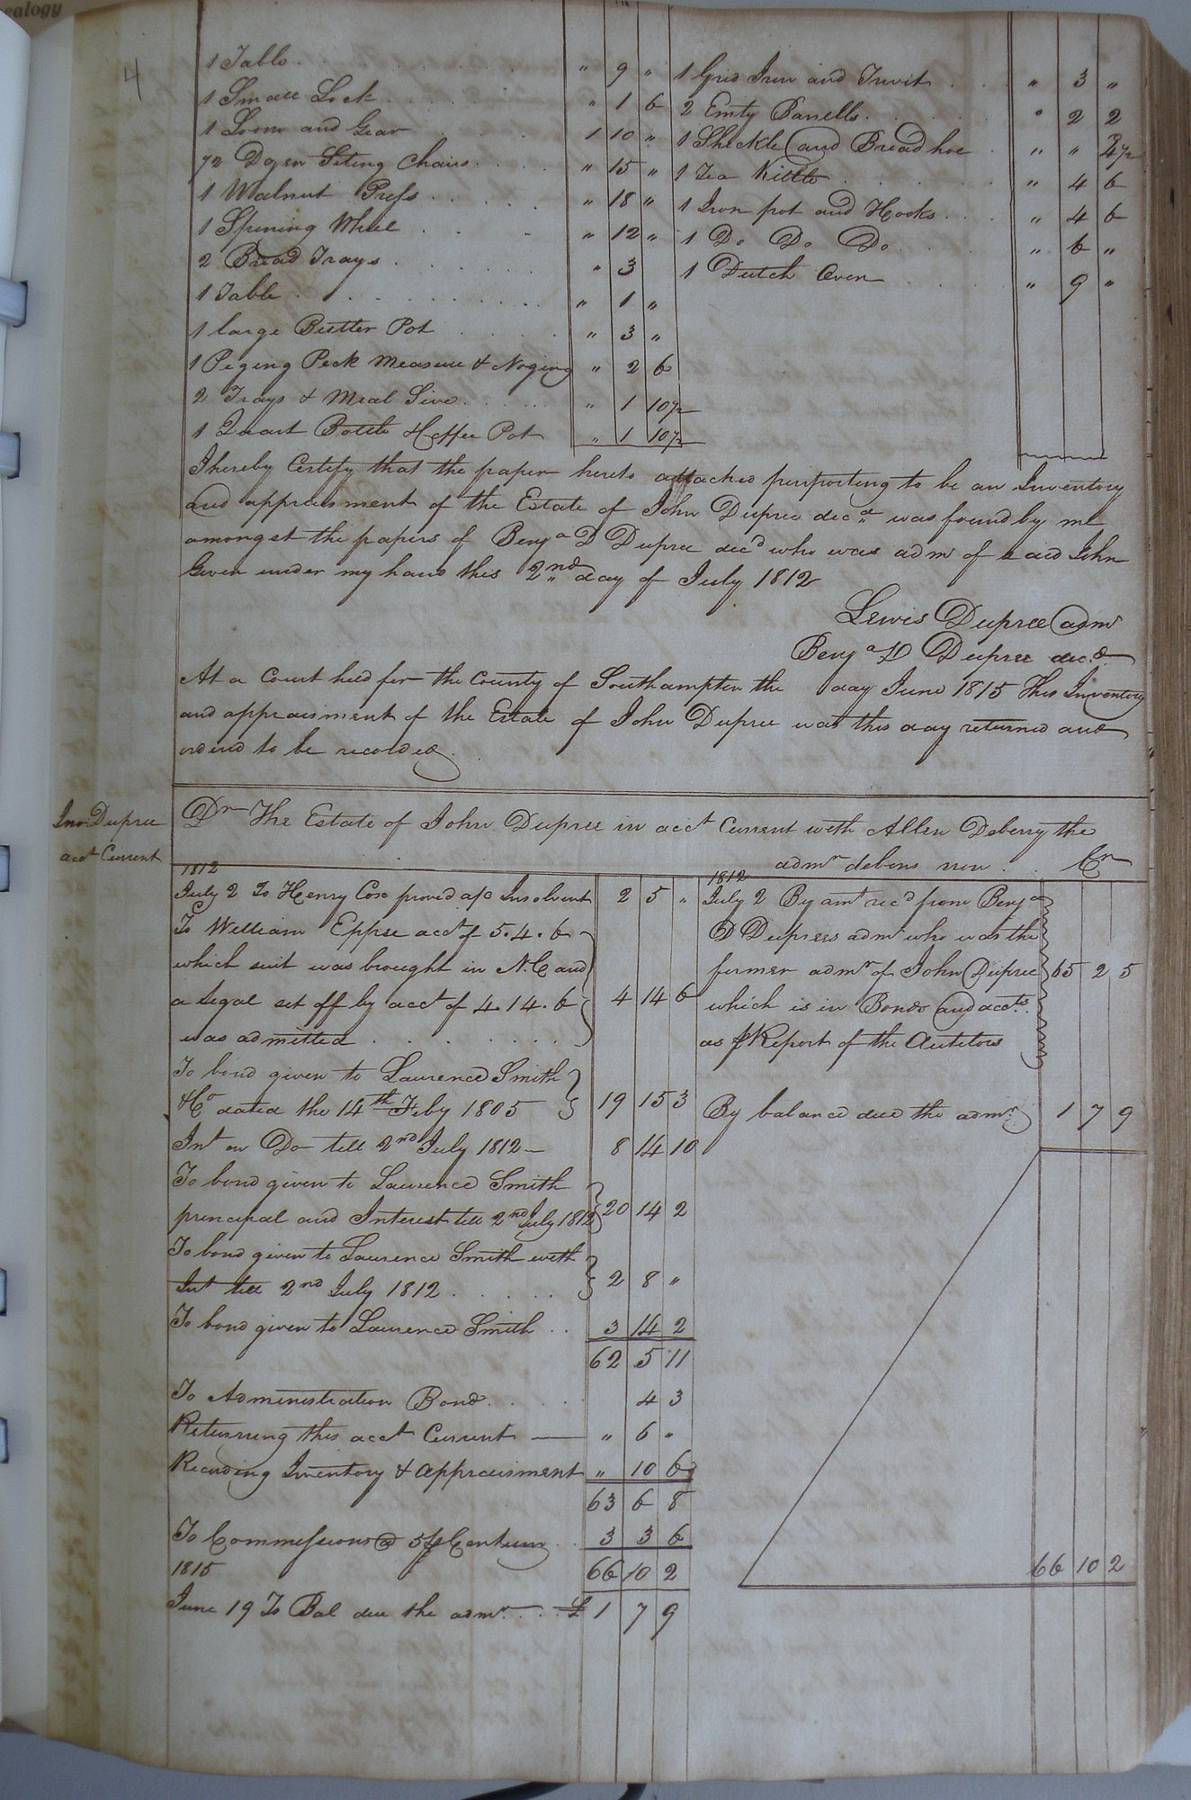 ealogy
4
1 Table . . . " 9 "
1 Small Lock . . . " 1 6
1 Loom and Gear 1 10 "
1/2 Dozen Siting Chairs . . " 15 "
1 Walnut Press . . . " 18 "
1 Spining Wheel . . . " 12 "
2 Bread Trays . . . " 3
1 Table . . . " 1 "
1 large Butter Pot " 3 "
1 Peging Peck measure & Noging " 2 6
2 Trays & Meal Sive . . . " 1 10 1/2
1 Quart Bottle & Coffee Pot " 1 10 1/2
1 Grid Iron and Trivit . . " 3 "
2 Emty Barrells . . . " 2 2
1 Sheckle and Broad hoe . " " 4 1/2
1 Tea Kittle . . . " 4 6
1 Iron pot and Hooks . . " 4 6
1 Do Do Do . . . " 6 "
1 Dutch Oven . . . " 9 "
I hereby Certify that the paper hereto attached purporting to be an Inventory
and appraisment of the Estate of John Dupree decd was found by me
amongst the papers of Benja D Dupree decd who was admr of said John
Given under my hand this 2nd day of July 1812
Lewis Dupree admr
Benja D Dupree decd.
At a Court held for the County of Southampton the day June 1815 This Inventory
and appraisment of the Estate of John Dupree was this day returned and
orderd to be recorded
Jno Dupree
acct Current
Dr The Estate of John Dupree in acct Current with Allen Deberry the
admr debons non . . Cr
1812
July 2 To Henry Cox proved a/c Insolvent 2 5 "
To William Eppee acct of 5.4.6
which suit was brought in N.C and
a legal set off by acct of 4.14.6 4 14 6
was admitted . . .
To bond given to Laurence Smith
& Co dated the 14th Feby 1805 19 15 3
Int on Do till 2nd July 1812 - 8 14 10
To bond given to Laurence Smith
principal and Interest till 2nd July 1812 20 14 2
To bond given to Laurence Smith with
Int till 2nd July 1812 . . . 2 8 "
To bond given to Laurence Smith . . 3 14 2
62 5 11
To Administration Bond . . . 4 3
Returning this acct Current — " 6 "
Recording Inventory & Appraisment " 10 6
63 6 8
To Commissions @ 5 p Centum . 3 3 6
1815 66 10 2
June 19 To Bal due the admr . . £ 1 7 9
1812
July 2 By amt recd from Benja
D Duprees admr who was the
former admr of John Dupree 65 2 5
which is in Bonds and accts.
as p Report of the Autitors
By balance due the admr. 1 7 9
66 10 2